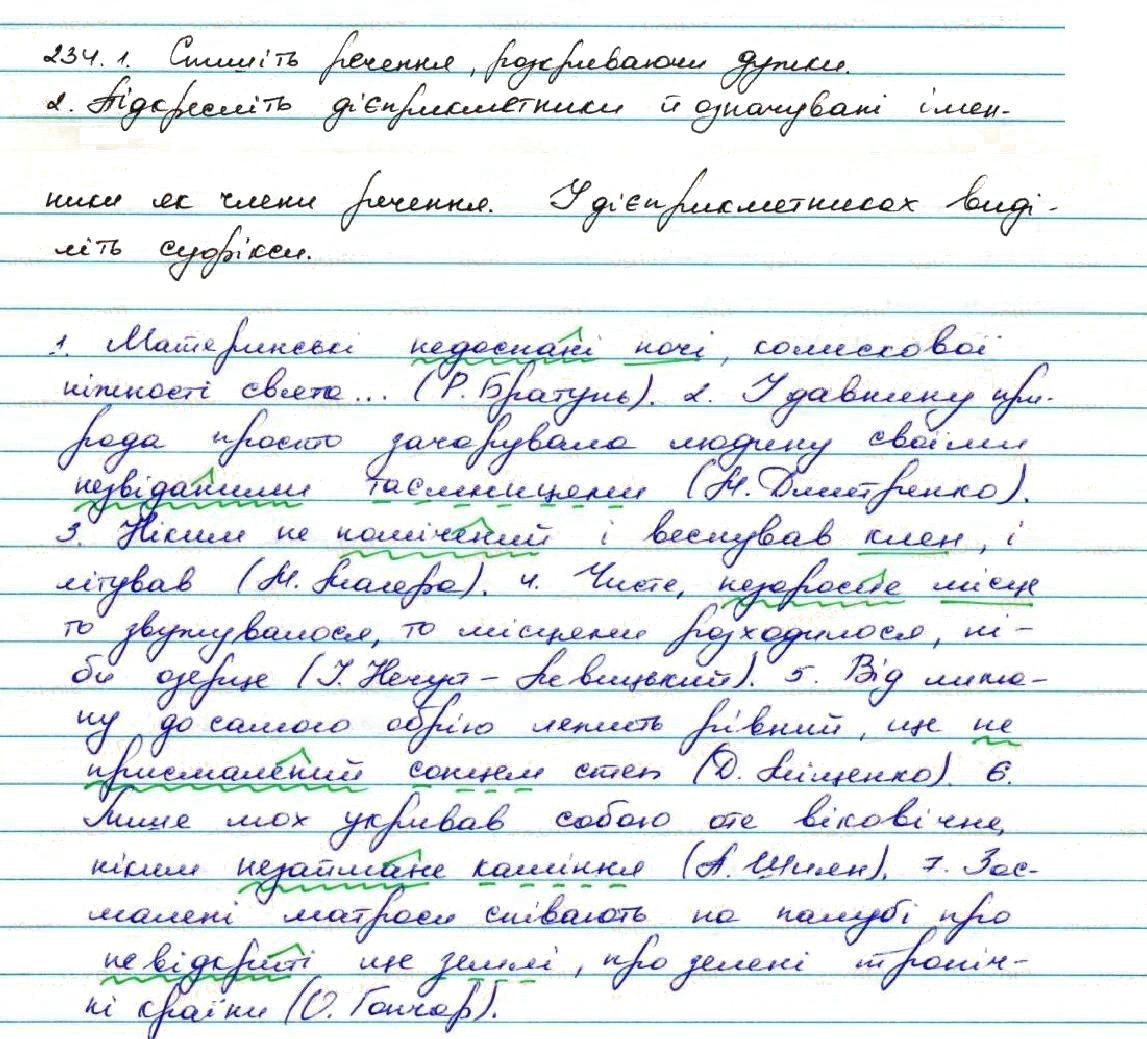 234. 1. Спишіть речення, розкриваючи дужки.
2. Підкресліть дієприкметники й означувані імен-
ники як члени речення. У дієприкметниках виді-
літь суфікси.
1. Материнські недоспані ночі, колискової
ніжності свята... (Р. Братунь). 2. У давнину при-
рода просто зачарувала людину своїми
незвіданими таємницями (М. Дмитренко).
3. Ніким не помічений і веснував клен, і
літував (М.). 4. Чисте, незаросле місце
то звужувалося, то місцями розходилося, ні-
би озерце (І. Нечуй-Левицький). 5. Від лима-
ну до самого обрію лежить рівний, ще не
присмалений сонцем степ (Д. Міщенко). 6.
Лише мох укривав собою оте віковічне,
ніким незаймане каміння (А. Шиян). 7. Зас-
малені матроси співають на палубі про
невідкриті ще землі, про зелені тропіч-
ні країни (О. Гончар).